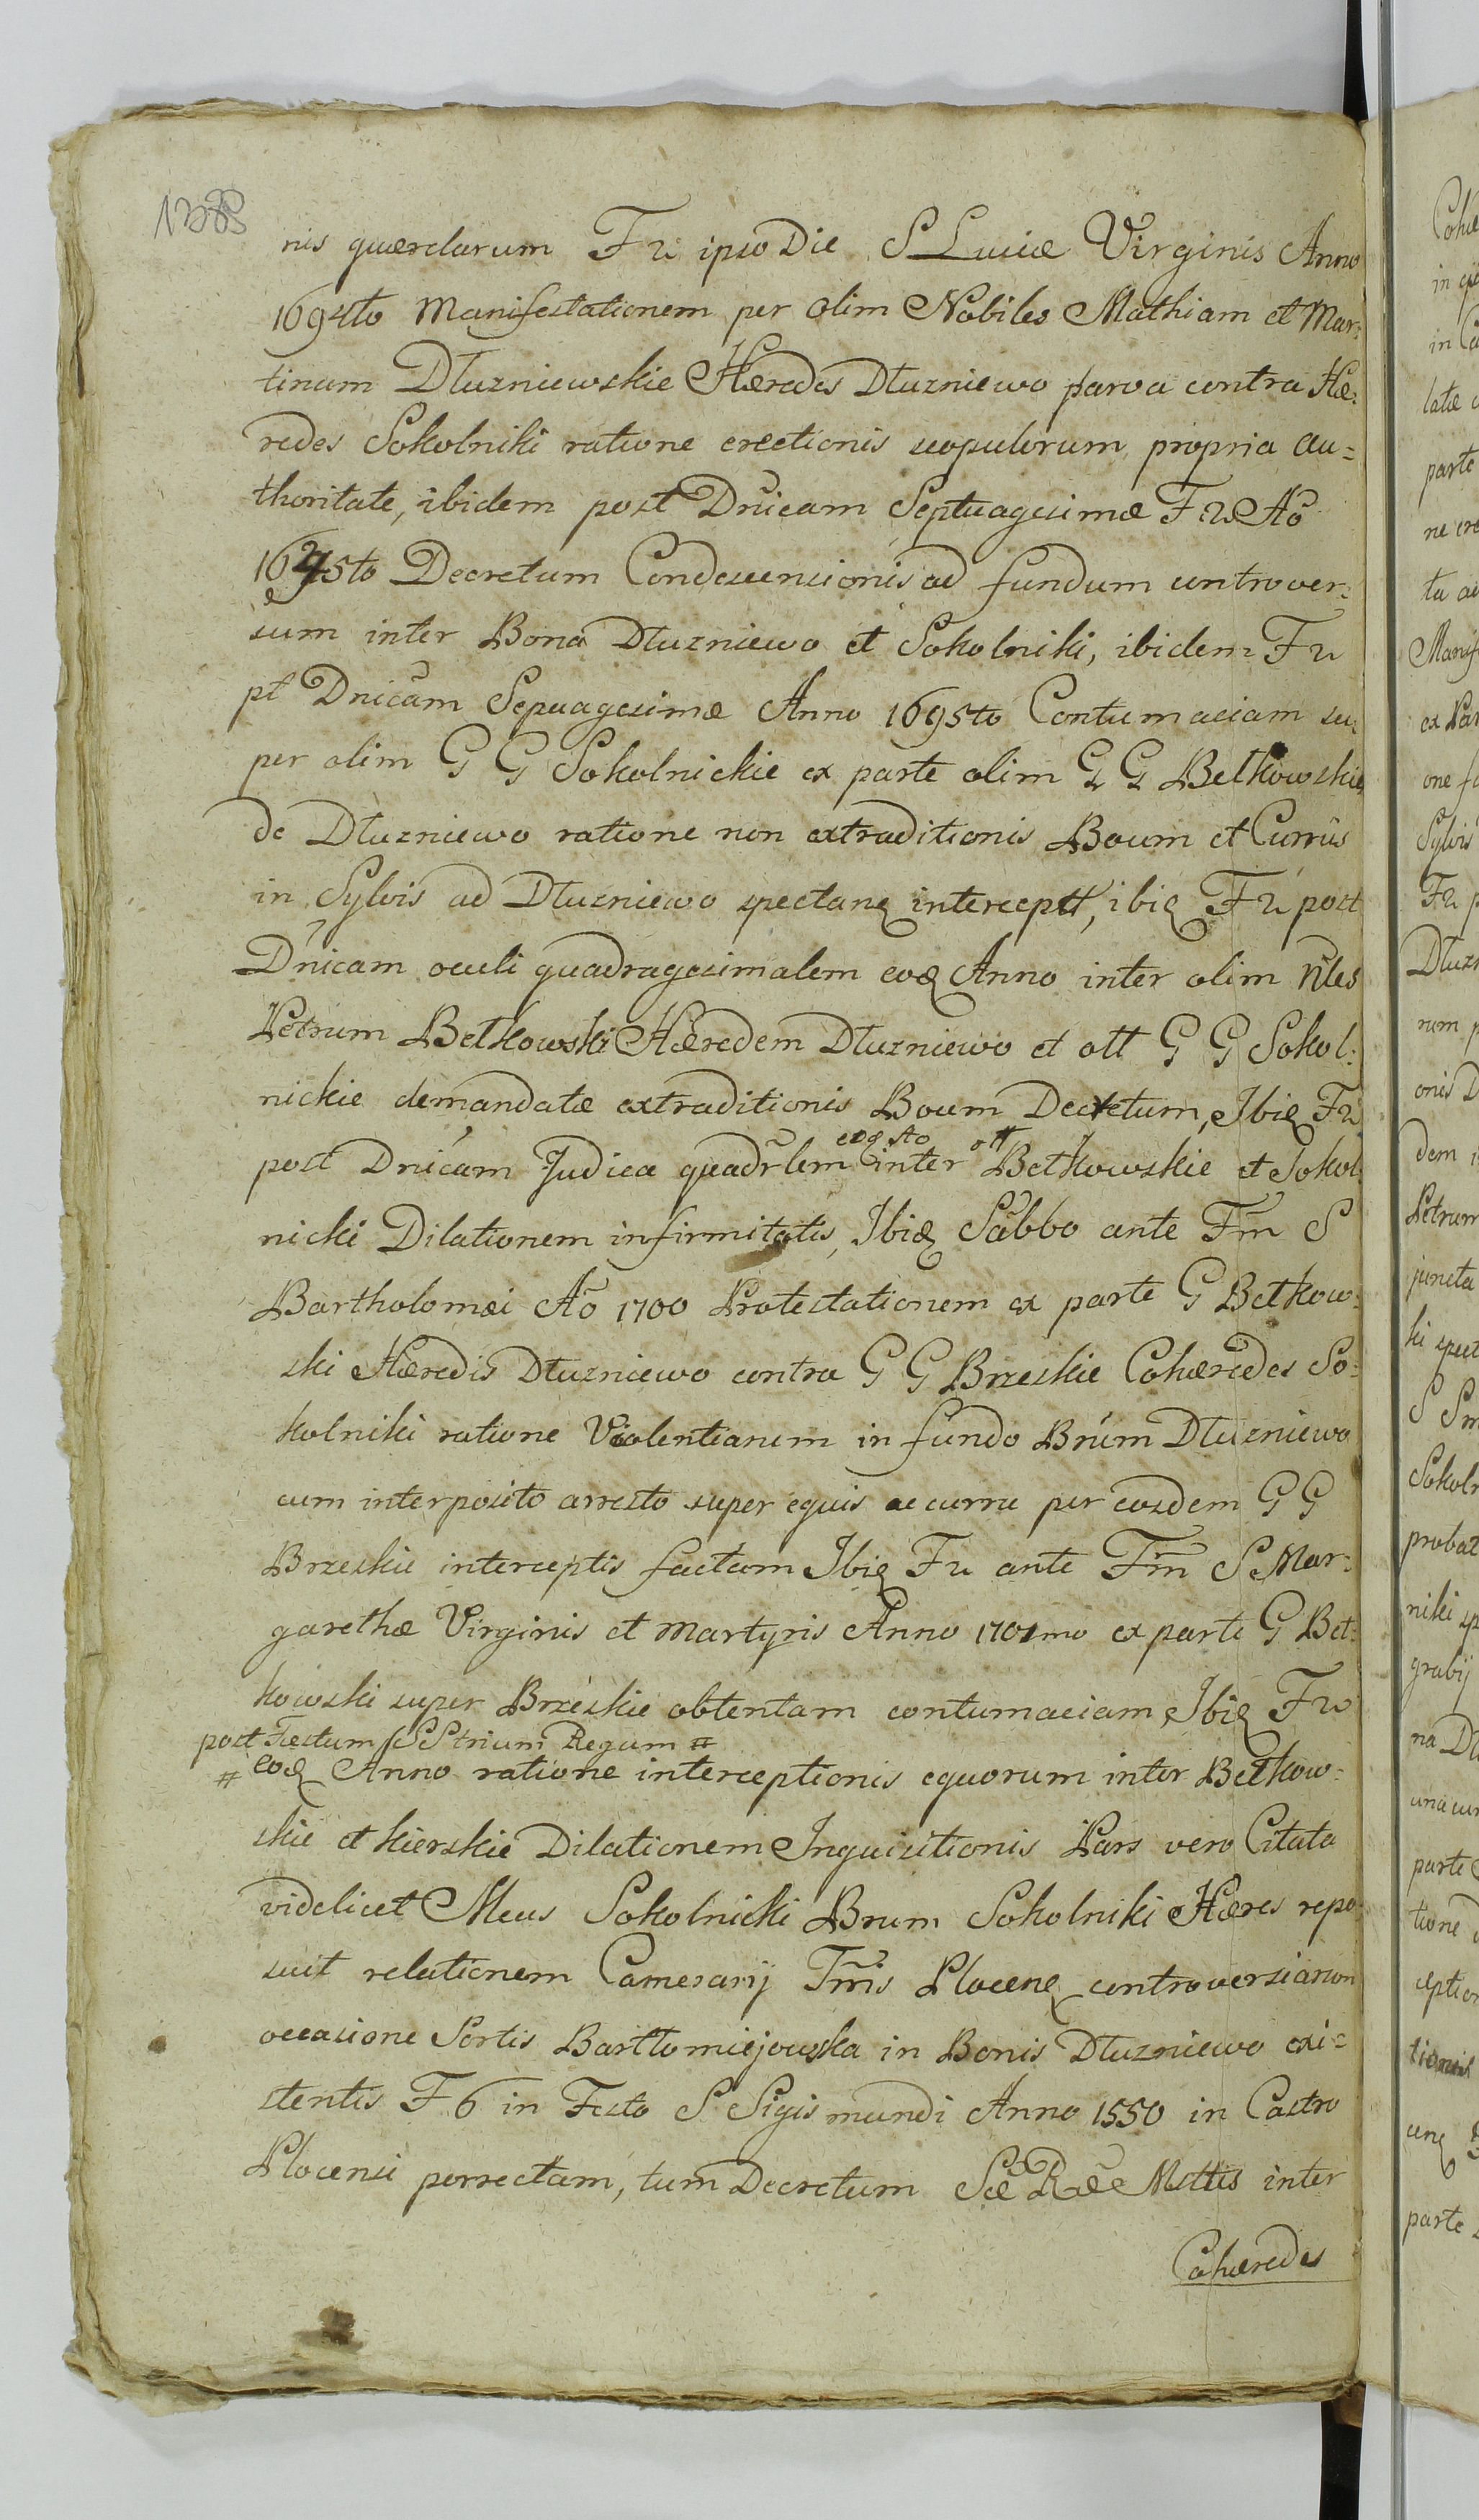 nis quærelarum F 2 ipso Die S Luciæ Virginis Anno
1694to Manifestationem per olim Nobiles Mathiam et Mar:
tinum Dłuzniewskie Hæredes Dłuzniewo parva contra Hæ:
redes Sokolniki ratione erectionis scopulorum propria au=
thoritate, ibidem post Dnicam Septuagesimæ F 2 Ao
1695to Decretum Condescensionis ad fundum controver:
sum inter Bona Dłuzniewo et Sokolniki, ibidem F 2
pt Dnicam Sepuagesimæ Anno 1695to Contumaciam su:
per olim G G Sokolnickie ex parte olim G G Betkowskie
de Dłuzniewo ratione non extraditionis Boum et Currus
in Sylvis ad Dłuzniewo spectanę interceptt, ibię F 2 post
Dnicam oculi quadragesimalem eoę Anno inter olim Nles
Petrum Betkowski Hæredem Dłuzniewo et ott G G Sokol:
nickie demandatæ extraditionis Boum Decretum, Ibię F 2
eoę Ao ott
post Dnicam Judica quadrlem inter Betkowskie et Sokol
nicki Dilationem infirmitatis, Ibię Sabbo ante Fm S
Bartholomæi Ao 1700 Protestationem ex parte G Betkow:
ski Hæredis Dłuzniewo contra G G Brzeskie Cohæredes So:
kolniki ratione Violentiarum in fundo Brum Dłuzniewo
cum interposito arresto super equis ac curru per eosdem G G
Brzeskie interceptis factam Ibię F 2 ante Fm S Mar:
garethæ Virginis et Martyris Anno 1701mo ex parte G Bet:
kowski super Brzeskie obtentam contumaciam, Ibię F 2
post Festum SS trium Regum #
# eoę Anno ratione interceptionis equorum inter Betkow:
skie et kierskie Dilationem Inquisitionis Pars vero Citata
videlicet Meus Sokolnicki Brum Sokolniki Hæres repo
suit relationem Camerarij Trris Plocenę controversiarum
occasione Sortis Bartłomiejowska in Bonis Dłuzniewo exi=
stentis F 6 in Festo S Sigismundi Anno 1550 in Castro
Plocensi porrectam, tum Decretum Sæ Ræ Mttis inter
Cohæredes